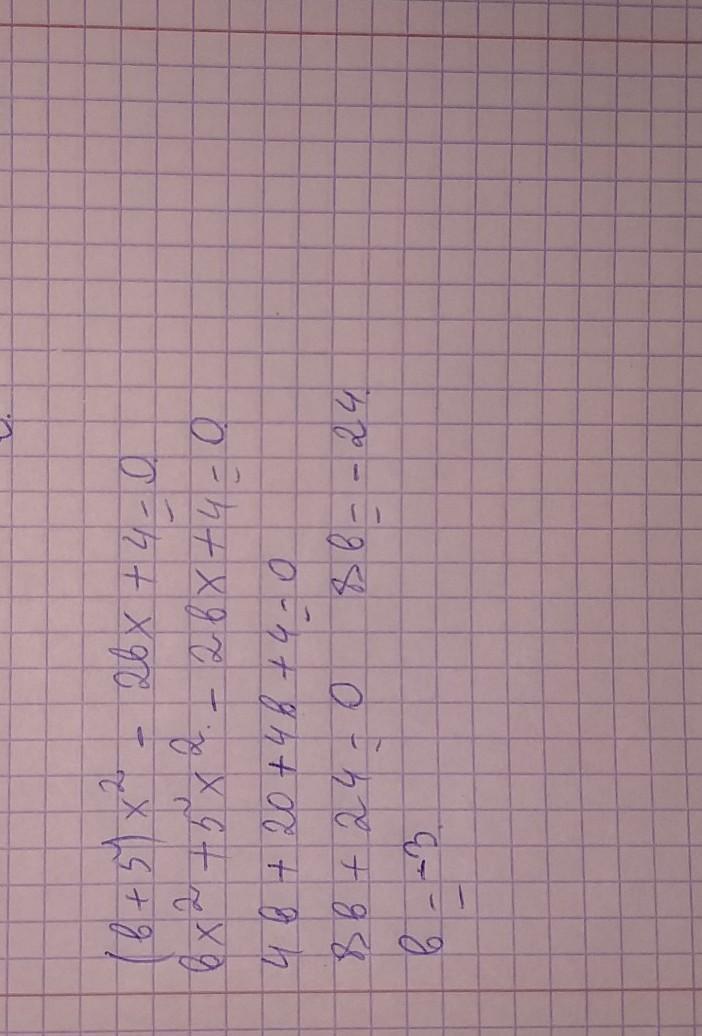 (b+5)x² - 2bx + 4 = 0.
bx² + 5x² - 2bx + 4 = 0.
4b + 20 + 4b + 4 = 0
8b + 24 = 0 8b = -24.
b = -3.